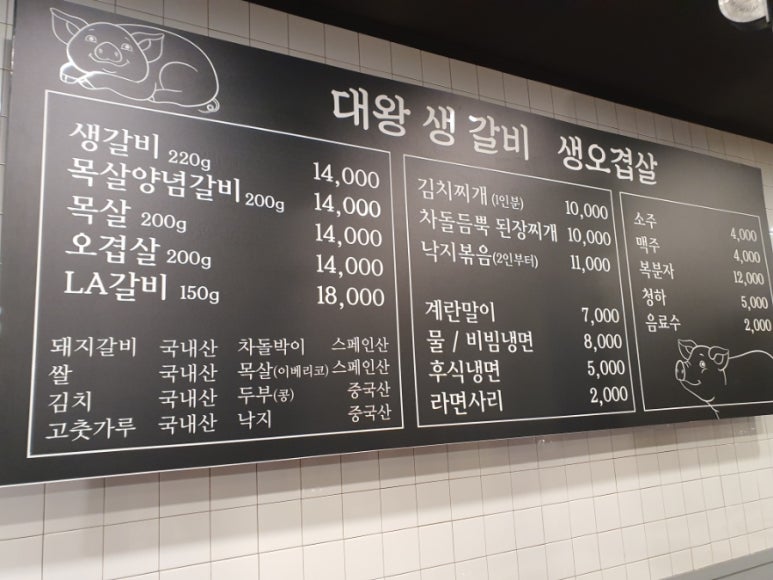 대왕 생 갈비 생오겹살
생갈비 220g 14,000
목살양념갈비 200g 14,000
목살 200g 14,000
오겹살 200g 14,000
LA갈비 150g 18,000
돼지갈비 국내산 차돌박이 스페인산
쌀 국내산 목살(이베리코) 스페인산
김치 국내산 두부(콩) 중국산
고춧가루 국내산 낙지 중국산
김치찌개 (1인분) 10,000
차돌듬뿍 된장찌개 10,000
낙지볶음(2인부터) 11,000
계란말이 7,000
물 / 비빔냉면 8,000
후식냉면 5,000
라면사리 2,000
소주 4,000
맥주 4,000
복분자 12,000
청하 5,000
음료수 2,000